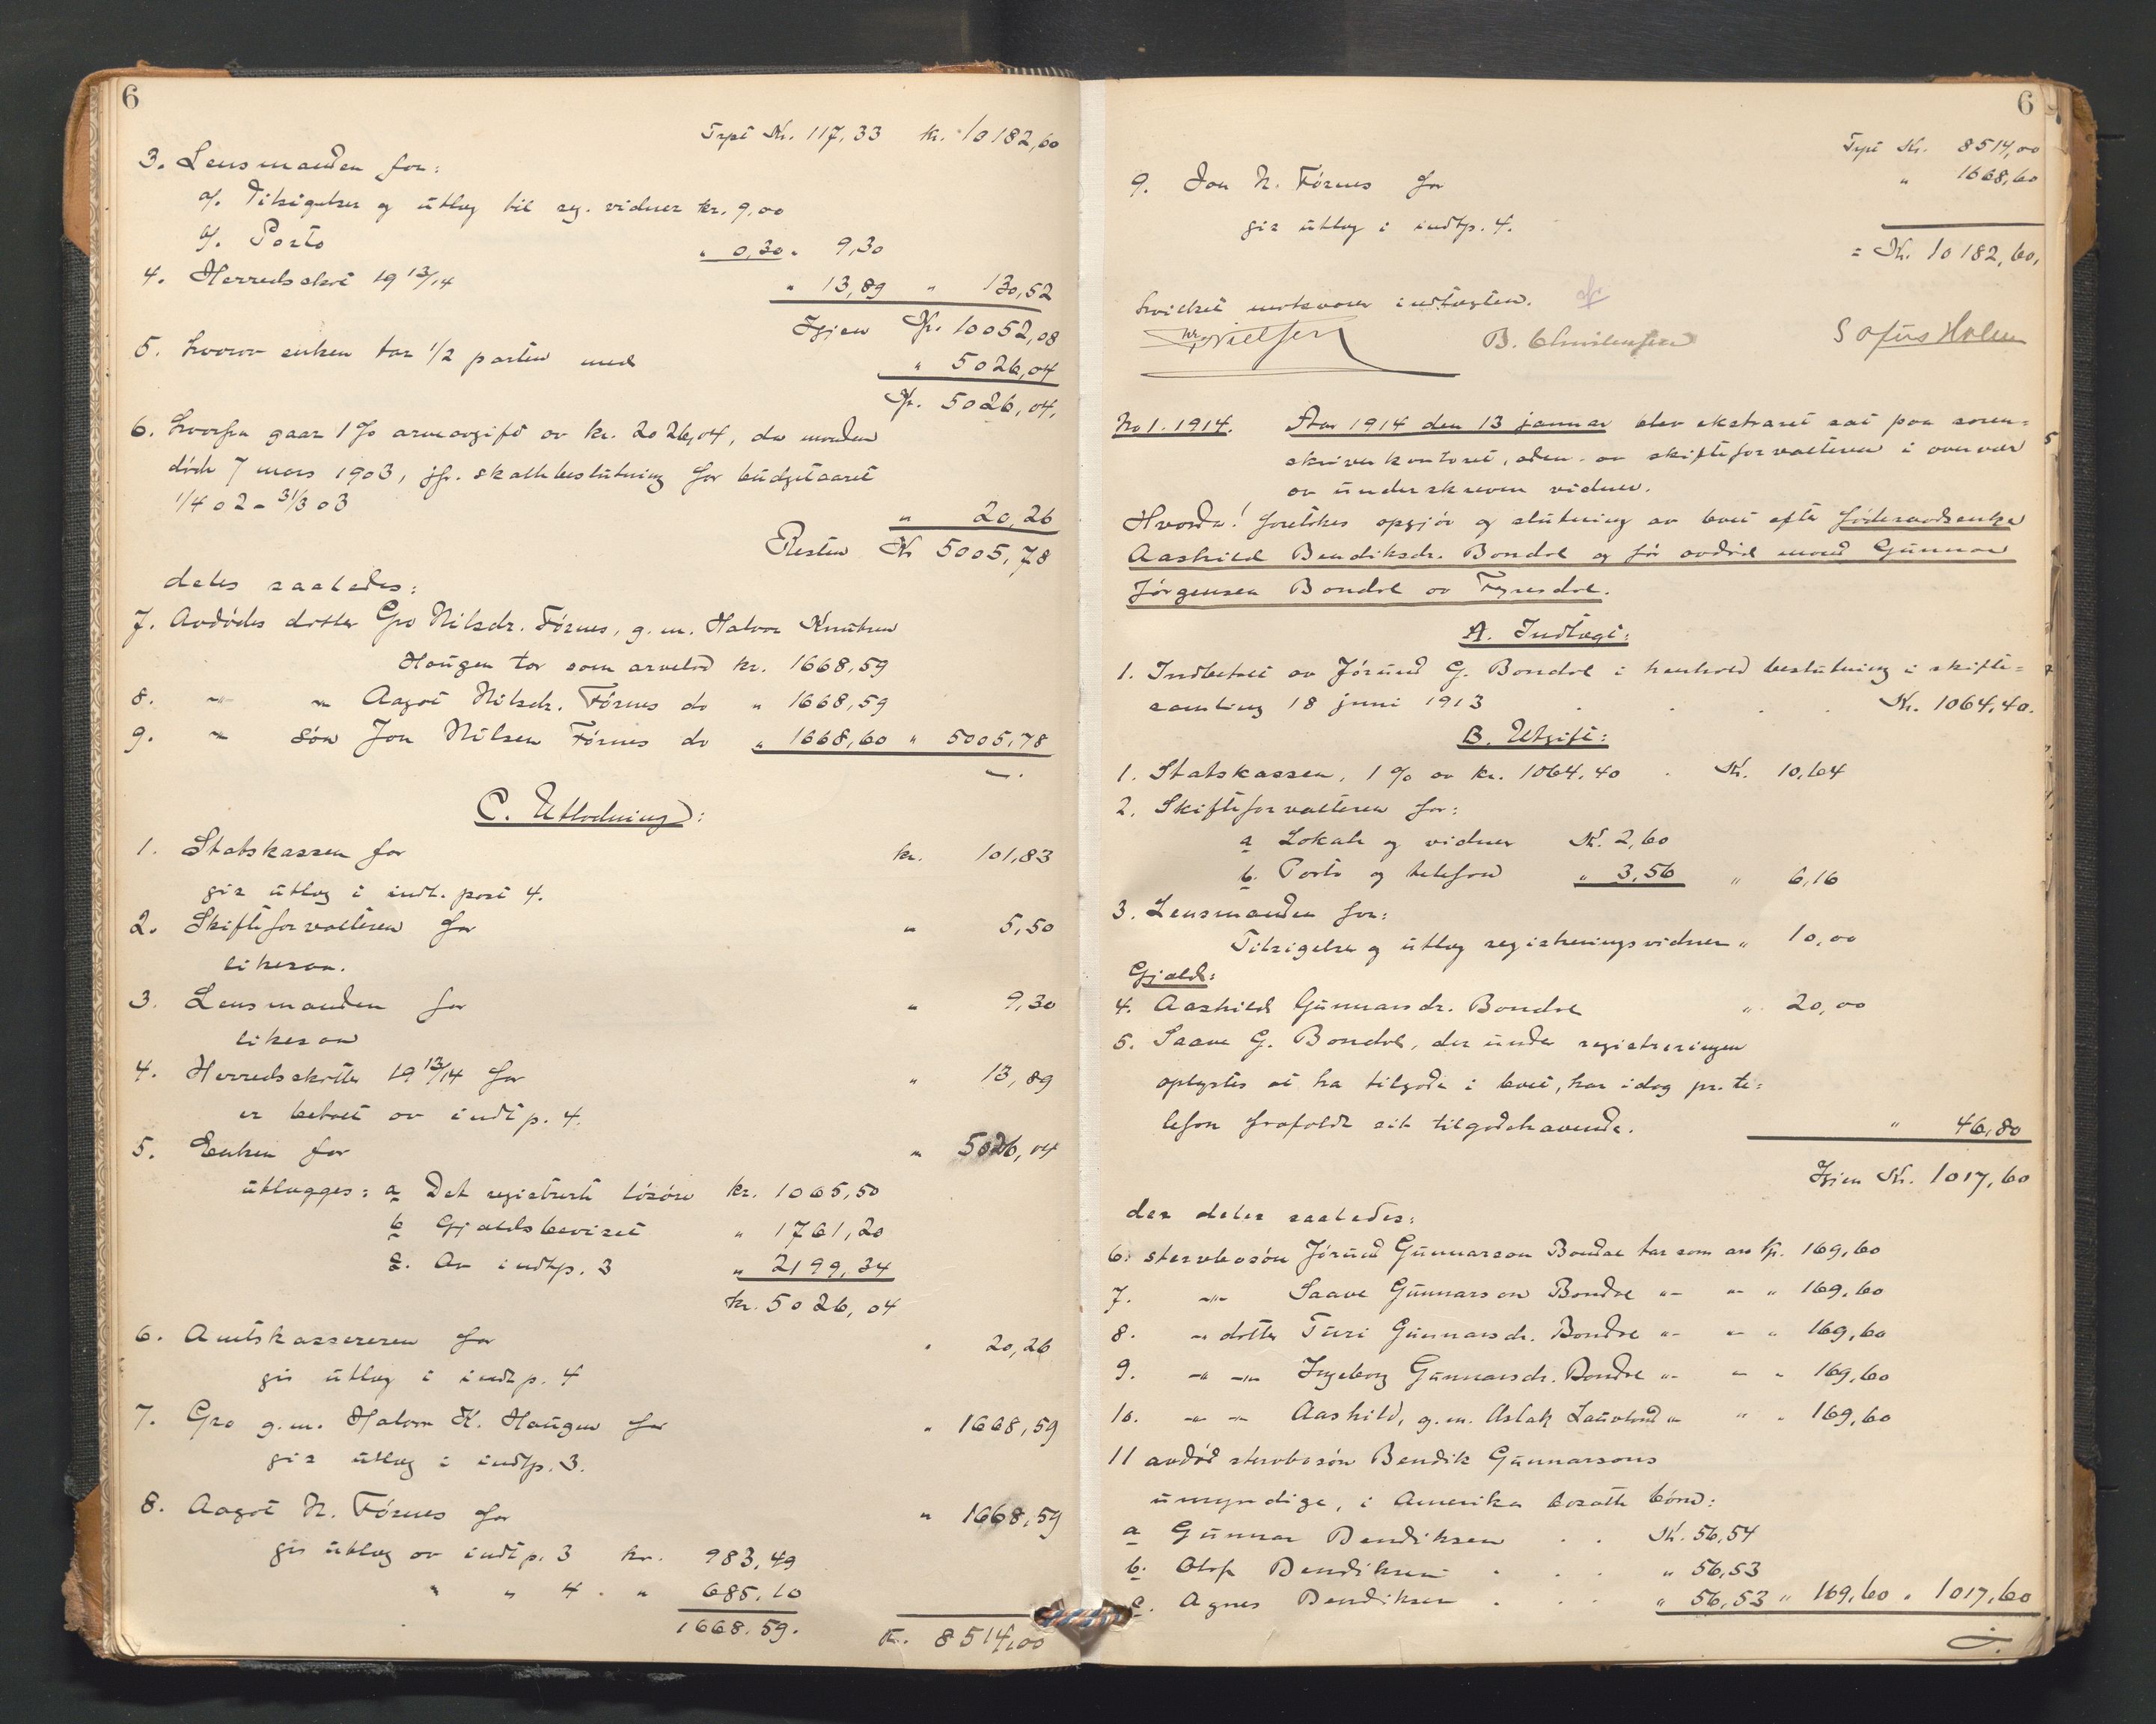 6
Trpt Kr. 117,33 kr. 10182,60
3. Lensmanden for:
a/. Tilsigelser og utlæg til reg. vidner kr. 9,00
b/. Porto " 0,30 " 9,30
4. Herredsskat 19 13/14 " 13,89 " 130,52
Igjen Kr. 10052,08
5. hvorav enken tar 1/2 parten med " 5026,04
Kr. 5026,04.
6. hvorfra gaar 1 % arveavgift av kr. 2026,04, da manden
døde 7 mars 1903, jfr. skattebeslutning for budgetaaret
1/4 02 - 31/3 03 " 20,26
Resten Kr 5005,78
deles saaledes:
7. Avdødes datter Gro Nilsdr. Fórnes, g.m. Halvor Knutsen
Haugen tar som arvelod kr. 1668,59
8. -"- -"- Aagot Nilsdr. Fórnes do " 1668,59
9. -"- søn Jon Nilsen Fórnes do " 1668,60 " 5005,78
C. Utlodning:
1. Statskassen for kr. 101,83
gis utlæg i indt. post 4.
2. Skifteforvalteren for " 5,50
likesaa.
3. Lensmanden for " 9,30
likesaa
4. Herredsskatten 19 13/14 for " 13,89
er betalt av indt p. 4.
5. Enken for " 5026,04
utlægges: a Det registrerte løsøre kr. 1065,50
b Gjældsbeviset " 1761,20
c. Av indtp. 3 " 2199,34
kr. 5026,04
6. Amtskassereren for " 20,26
gis utlæg i indtp. 4
7. Gro g.m. Halvor K. Haugen for " 1668,59
gis utlæg i indtp. 3.
8. Aagot N. Fórnes for " 1668,59
gis utlæg av indtp. 3 kr. 983,49
" " 4 . " 685,10
1668.59.
Kr. 8514,00
6
Trpt Kr. 8514,00
9. Jon N. Fórnes for " 1668,60
gis utlæg i indtp. 4.
= Kr. 10182,60,
hvilket motsvarer indtægten.
Nielsen B. Christensen Sofus Holm
No 1. 1914. Aar 1914 den 13 januar blev ekstraret sat paa soren-
skriverkontoret, aden. av skifteforvalteren i overvær
av underskrevne vidner.
Hvorda! foretokes opgjør og slutning av boet efter føderaadsenke
Aashild Bendiksdr. Bondal og før avdød mand Gunnar
Jørgensen Bondal av Fyresdal.
A. Indtægt:
1. Indbetalt av Jórund G. Bondal i henhold beslutning i skifte-
samling 18 juni 1913 . . . Kr. 1064,40.
B. Utgift:
1. Statskassen, 1 % av kr. 1064,40 . Kr. 10,64
2. Skifteforvalteren for:
a Lokale og vidner Kr. 2,60
b. Porto og telefon " 3,56 " 6,16
3. Lensmanden for:
Tilsigelse og utlæg registreringsvidner " 10,00
Gjæld:
4. Aashild Gunnarsdr. Bondal " 20,00
5. Saave G. Bondal, der under registreringen
oplystes at ha tilgode i boet, har idag pr. te-
lefon frafaldt sit tilgodehavende. " 46,80
Igjen Kr. 1017,60
der deles saaledes:
6. stervbosøn Jórund Gunnarson Bondal tar som arv Kr. 169,60
7. -"- Saave Gunnarson Bondal "- "- " 169,60
8. -"- datter Turi Gunnarsdr. Bondal "- "- " 169,60
9. -"- -"- Ingeborg Gunnarsdr. Bondal "- "- " 169,60
10. -"- -"- Aashild, g.m. Aslak Lauvland "- " " 169,60
11 avdød stervbosøn Bendik Gunnarsons
umyndige, i Amerika bosatte børn:
a Gunnar Bendiksen . . Kr. 56,54
b. Olof Bendiksen . . . " 56,53
c. Agnes Bendiksen . . . " 56,53 " 169,60 . 1017,60